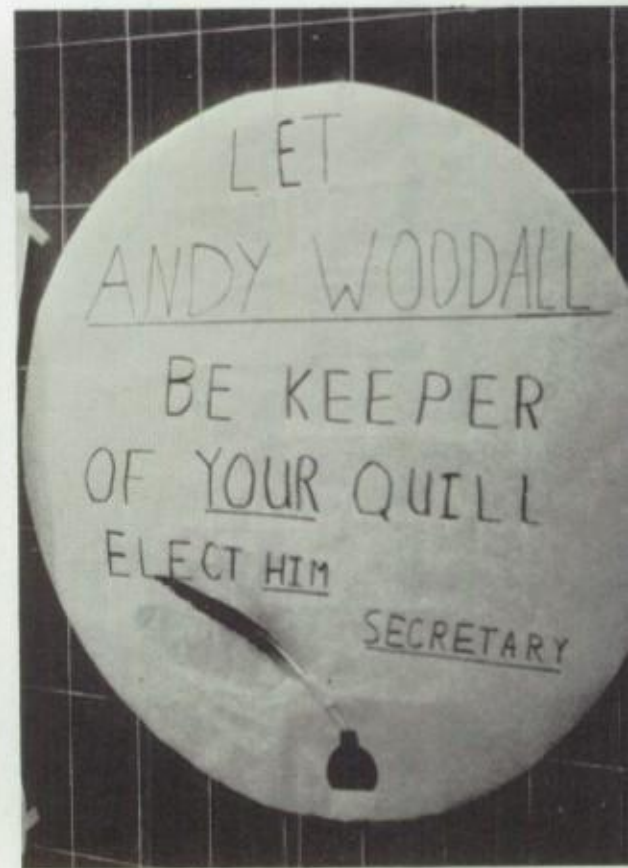 LET
ANDY WOODALL
BE KEEPER
OF YOUR QUILL
ELECT HIM
SECRETARY